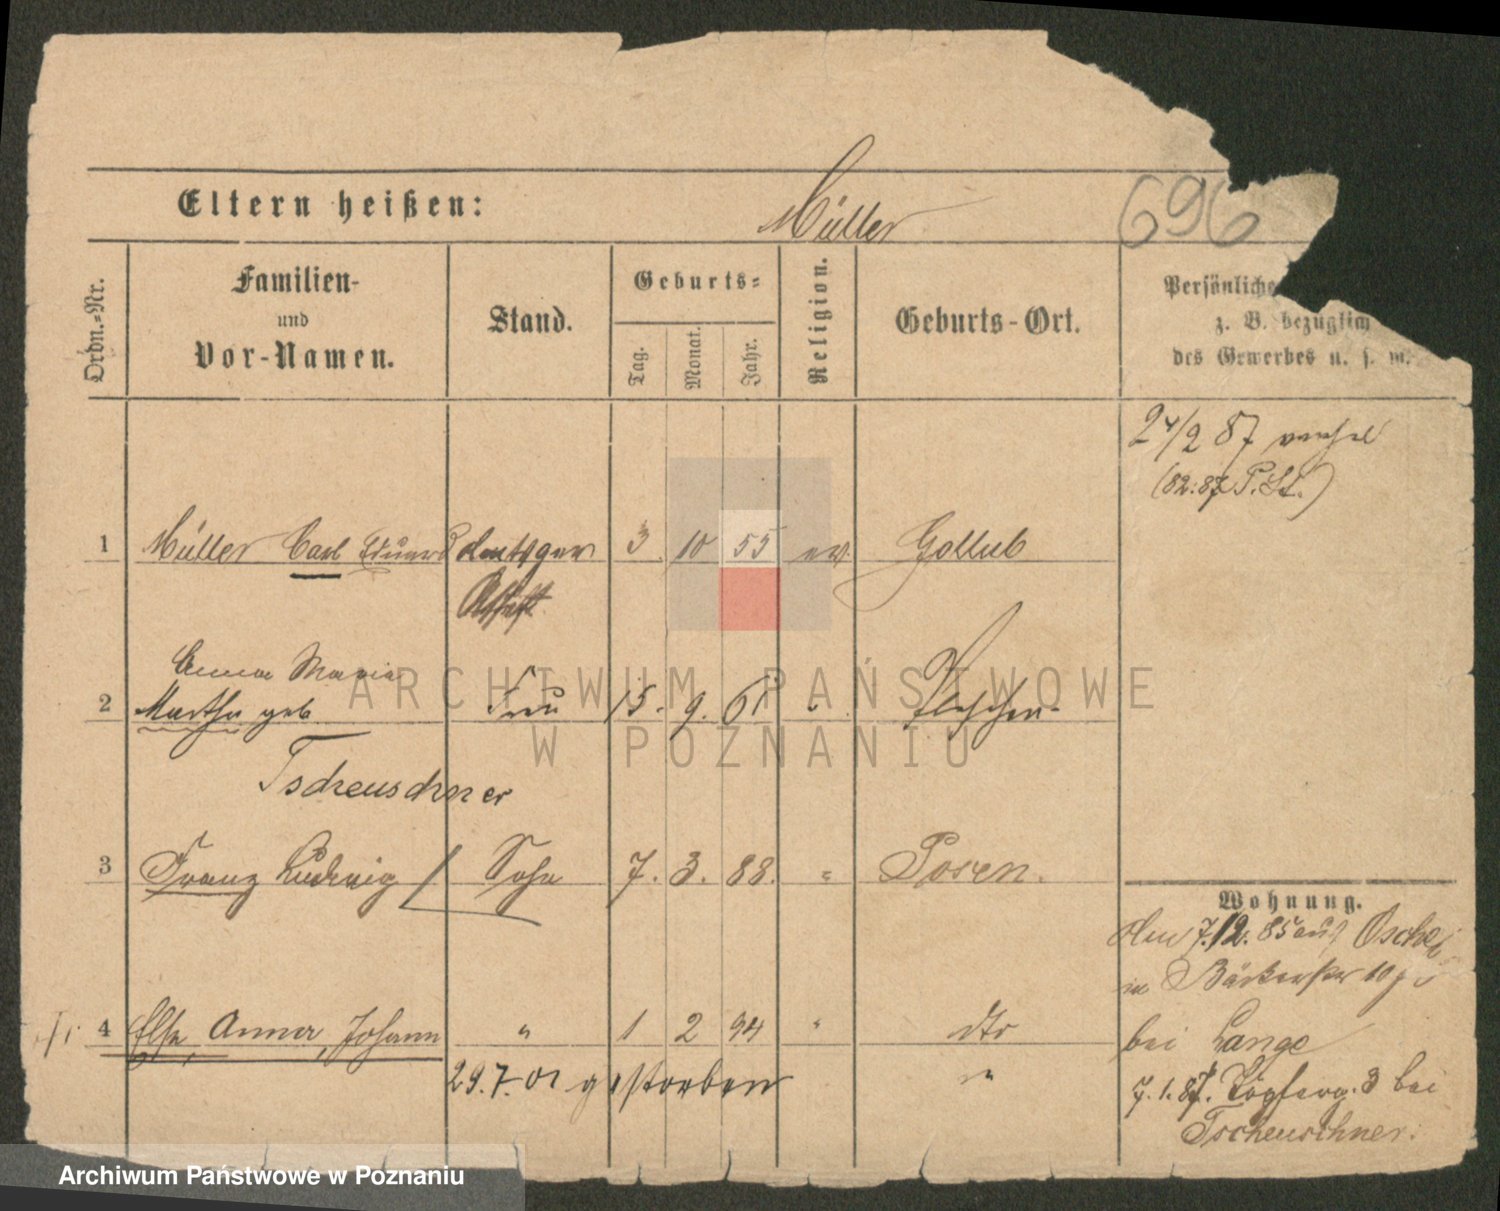 Eltern heißen: Müller
696
Ordn.-Nr.
Familien-
und
Vor-Namen.
Stand.
Geburts-
Tag. Monat. Jahr.
Religion.
Geburts-Ort.
Persönliche
z. B. bezüglich
des Gewerbes u. s. w.
24/2 87
(82:87 P. St.)
1 Müller Carl Eduard 3. 10 55 ev Gollub
Anna Maria
2 Martha geb Frau 15. 9. 61 " Pleschen
Tscheuschner
3 Franz Ludwig Sohn 7. 3. 88. " Posen.
Wohnung.
7.12.85 aus
in Bäckerstr 10
4 Else, Anna, Johann " 1 2 94 " dto
bei Lange
29.7.01 gestorben "
7.1.87. Töpferg. 3 bei
Tscheuschner.
ARCHIWUM PAŃSTWOWE
W POZNANIU
Archiwum Państwowe w Poznaniu